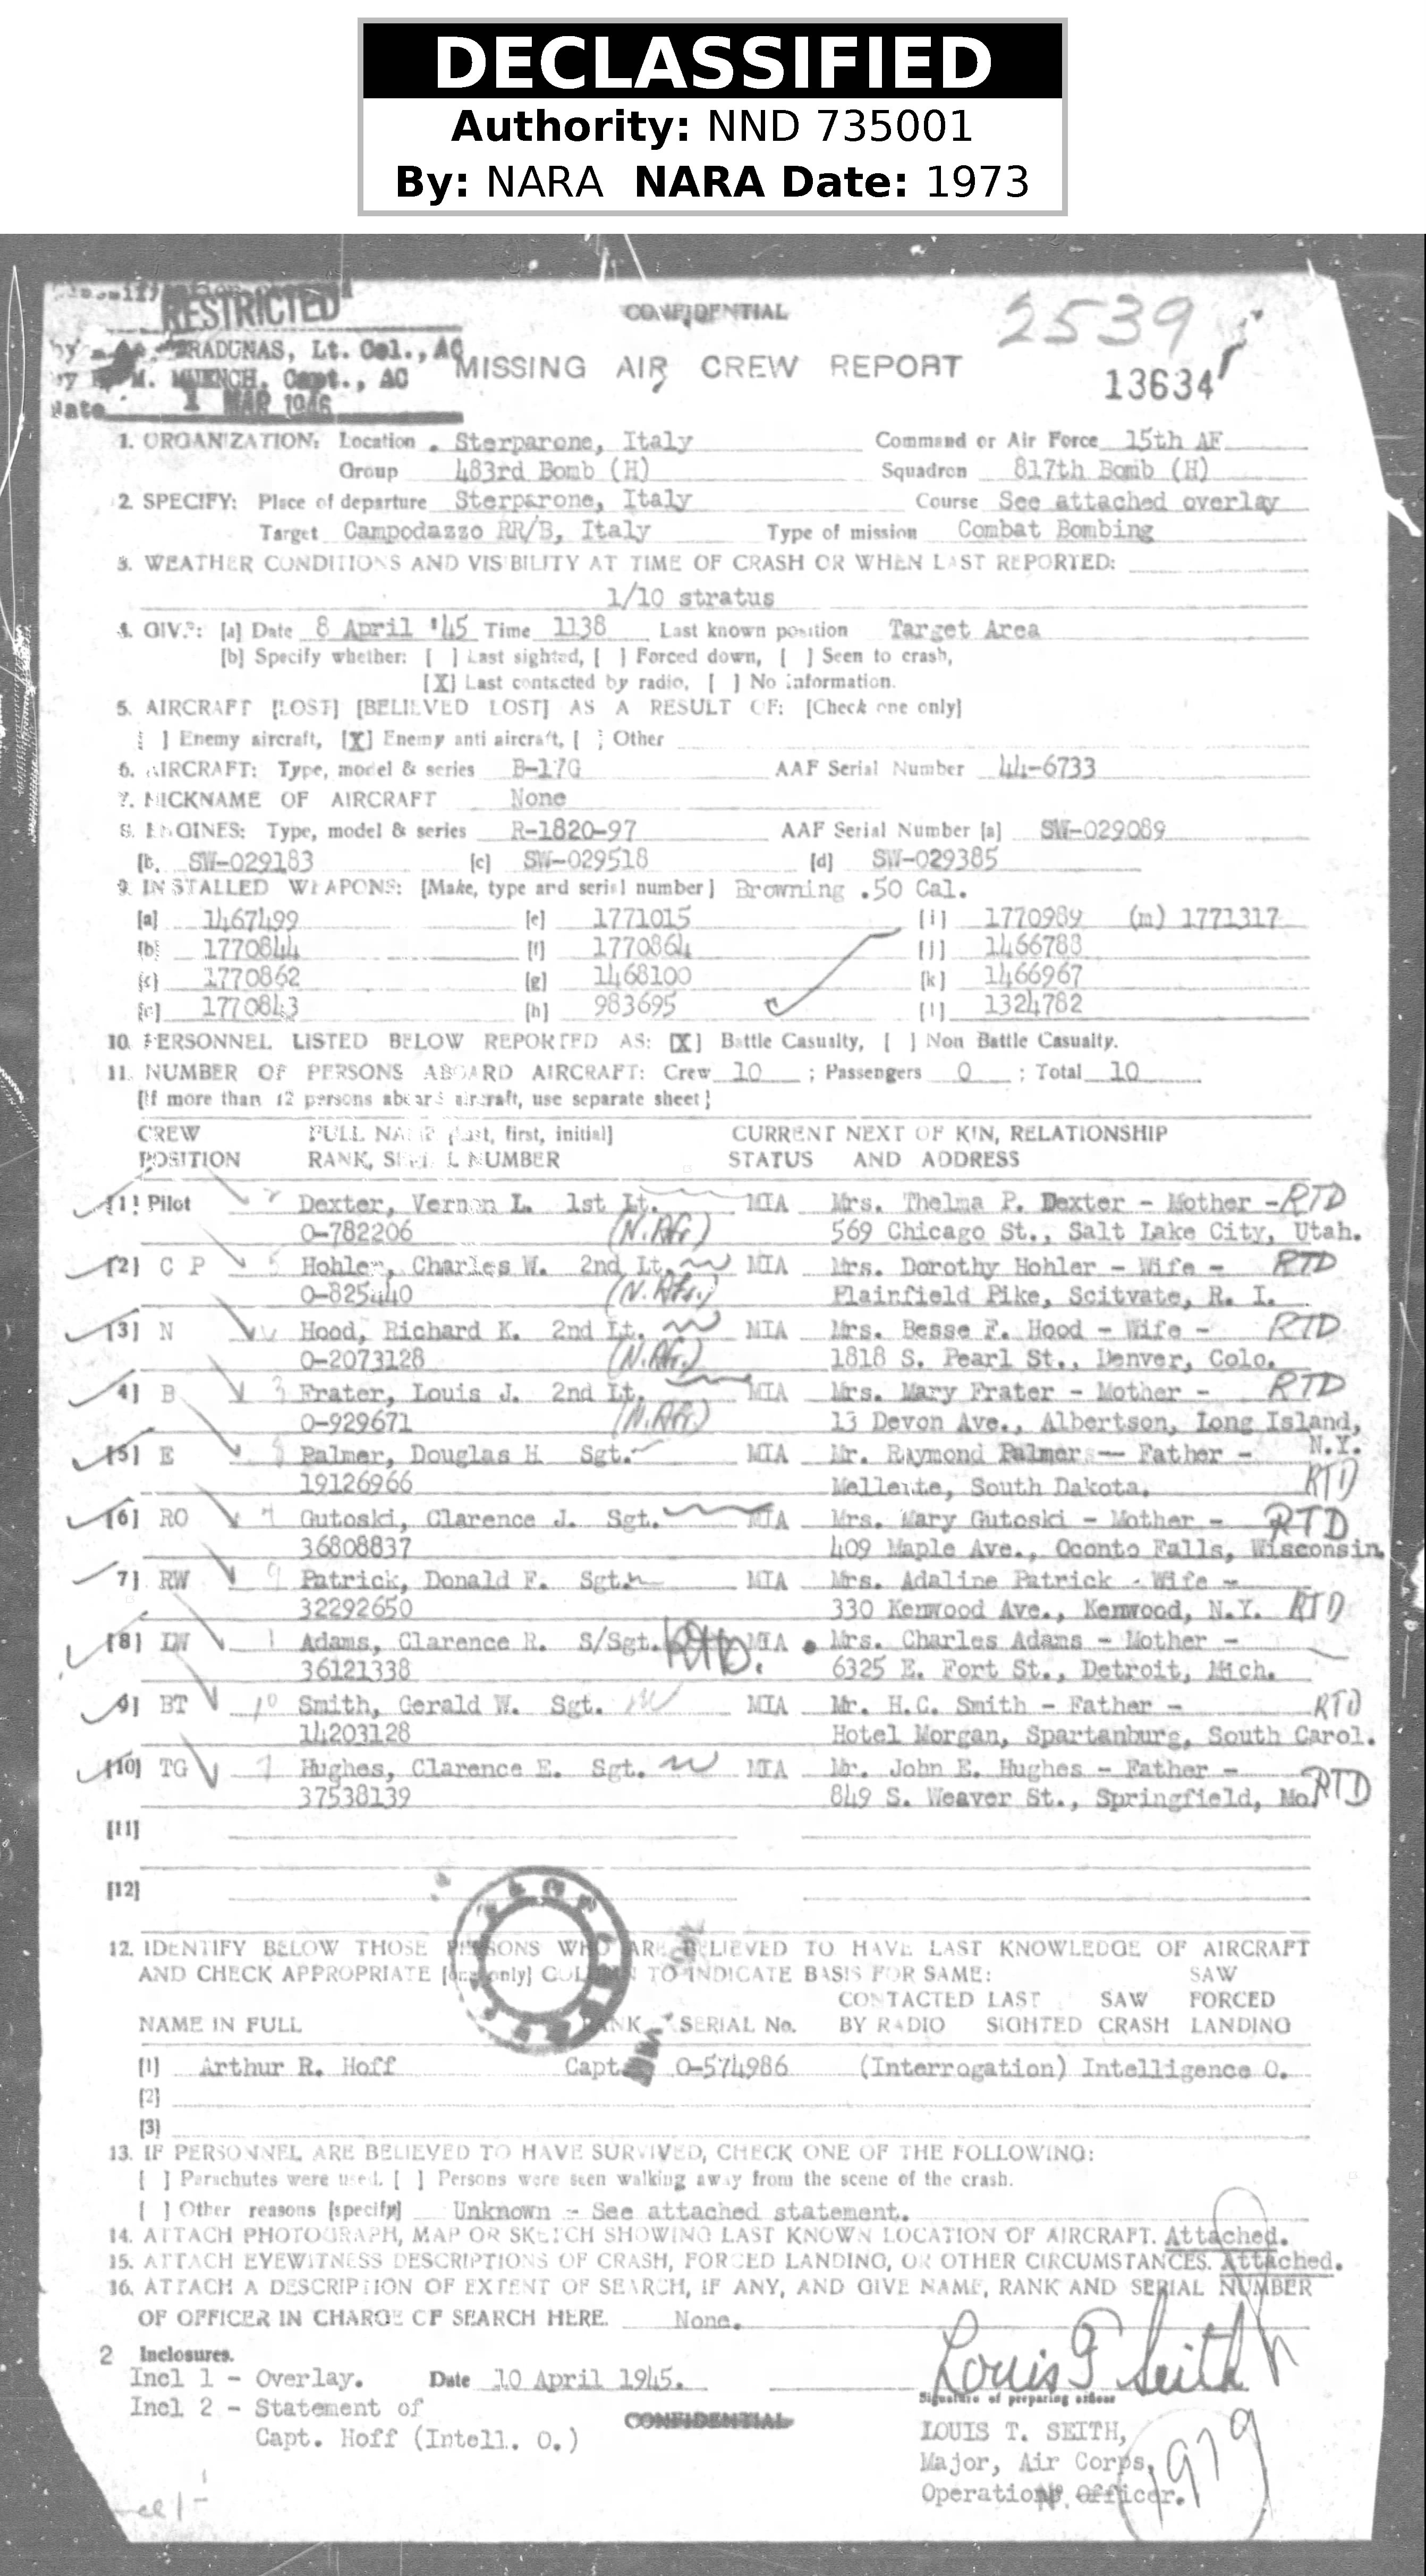 DECLASSIFIED
Authority: NND 735001
By: NARA NARA Date: 1973
RESTRICTED
CONFIDENTIAL
2539
BRADUNAS, Lt. Col., AC
M. MUENCH, Capt., AC
Date 1 MAR 1946
MISSING AIR CREW REPORT
13634
1. ORGANIZATION: Location . Sterparone, Italy Command or Air Force 15th AF
Group 483rd Bomb (H) Squadron 817th Bomb (H)
2. SPECIFY: Place of departure Sterparone, Italy Course See attached overlay
Target Campodazzo RR/B, Italy Type of mission Combat Bombing
3. WEATHER CONDITIONS AND VISIBILITY AT TIME OF CRASH OR WHEN LAST REPORTED:
1/10 stratus
4. GIVE: [a] Date 8 April '45 Time 1138 Last known position Target Area
[b] Specify whether: [ ] Last sighted, [ ] Forced down, [ ] Seen to crash,
[X] Last contacted by radio, [ ] No Information.
5. AIRCRAFT [LOST] [BELIEVED LOST] AS A RESULT OF: [Check one only]
[ ] Enemy aircraft, [X] Enemy anti aircraft, [ ] Other
6. AIRCRAFT: Type, model & series B-17G AAF Serial Number 44-6733
7. NICKNAME OF AIRCRAFT None
8. ENGINES: Type, model & series R-1820-97 AAF Serial Number [a] SW-029089
[b] SW-029183 [c] SW-029518 [d] SW-029385
9. INSTALLED WEAPONS: [Make, type and serial number] Browning .50 Cal.
[a] 1467499 [e] 1771015 [i] 1770989 (m) 1771317
[b] 1770844 [f] 1770864 [j] 1466783
[c] 1770862 [g] 1468100 [k] 1466967
[d] 1770843 [h] 983695 [l] 1324782
10. PERSONNEL LISTED BELOW REPORTED AS: [X] Battle Casualty, [ ] Non Battle Casualty.
11. NUMBER OF PERSONS ABOARD AIRCRAFT: Crew 10 ; Passengers 0 ; Total 10
[If more than 12 persons aboard aircraft, use separate sheet]
CREW FULL NAME [Last, first, initial] CURRENT NEXT OF KIN, RELATIONSHIP
POSITION RANK, SERIAL NUMBER STATUS AND ADDRESS
[1] Pilot Dexter, Vernon L. 1st Lt. MIA Mrs. Thelma P. Dexter - Mother - RTD
0-782206 (N.Afr.) 569 Chicago St., Salt Lake City, Utah.
[2] C P Hohler, Charles W. 2nd Lt. MIA Mrs. Dorothy Hohler - Wife - RTD
0-825440 (N.Afr.) Plainfield Pike, Scitvate, R. I.
[3] N Hood, Richard K. 2nd Lt. MIA Mrs. Besse F. Hood - Wife - RTD
0-2073128 (N.Afr.) 1818 S. Pearl St., Denver, Colo.
[4] B Frater, Louis J. 2nd Lt. MIA Mrs. Mary Frater - Mother - RTD
0-929671 (N.Afr.) 13 Devon Ave., Albertson, Long Island,
[5] E Palmer, Douglas H Sgt. MIA Mr. Raymond Palmer - Father - N.Y.
19126966 Mellente, South Dakota. RTD
[6] RO Gutoski, Clarence J. Sgt. MIA Mrs. Mary Gutoski - Mother - RTD
36808837 409 Maple Ave., Oconto Falls, Wisconsin.
[7] RW Patrick, Donald F. Sgt. MIA Mrs. Adaline Patrick - Wife -
32292650 330 Kenwood Ave., Kenwood, N.Y. RTD
[8] LW 1 Adams, Clarence R. S/Sgt. RTD. MIA Mrs. Charles Adams - Mother -
36121338 6325 E. Fort St., Detroit, Mich.
[9] BT 10 Smith, Gerald W. Sgt. MIA Mr. H.C. Smith - Father - RTD
14203128 Hotel Morgan, Spartanburg, South Carol.
[10] TG Hughes, Clarence E. Sgt. MIA Mr. John E. Hughes - Father -
37538139 849 S. Weaver St., Springfield, Mo. RTD
[11]
[12]
12. IDENTIFY BELOW THOSE PERSONS WHO ARE BELIEVED TO HAVE LAST KNOWLEDGE OF AIRCRAFT
AND CHECK APPROPRIATE [one only] COLUMN TO INDICATE BASIS FOR SAME: SAW
CONTACTED LAST SAW FORCED
NAME IN FULL RANK SERIAL No. BY RADIO SIGHTED CRASH LANDING
[1] Arthur R. Hoff Capt. 0-574986 (Interrogation) Intelligence O.
[2]
[3]
13. IF PERSONNEL ARE BELIEVED TO HAVE SURVIVED, CHECK ONE OF THE FOLLOWING:
[ ] Parachutes were used. [ ] Persons were seen walking away from the scene of the crash.
[ ] Other reasons [specify] Unknown - See attached statement.
14. ATTACH PHOTOGRAPH, MAP OR SKETCH SHOWING LAST KNOWN LOCATION OF AIRCRAFT. Attached.
15. ATTACH EYEWITNESS DESCRIPTIONS OF CRASH, FORCED LANDING, OR OTHER CIRCUMSTANCES. Attached.
16. ATTACH A DESCRIPTION OF EXTENT OF SEARCH, IF ANY, AND GIVE NAME, RANK AND SERIAL NUMBER
OF OFFICER IN CHARGE OF SEARCH HERE. None.
2 Inclosures.
Louis T Seith
Incl 1 - Overlay. Date 10 April 1945.
Signature of preparing officer
Incl 2 - Statement of
Capt. Hoff (Intell. O.)
CONFIDENTIAL
LOUIS T. SEITH,
Major, Air Corps,
Operations Officer.
1979